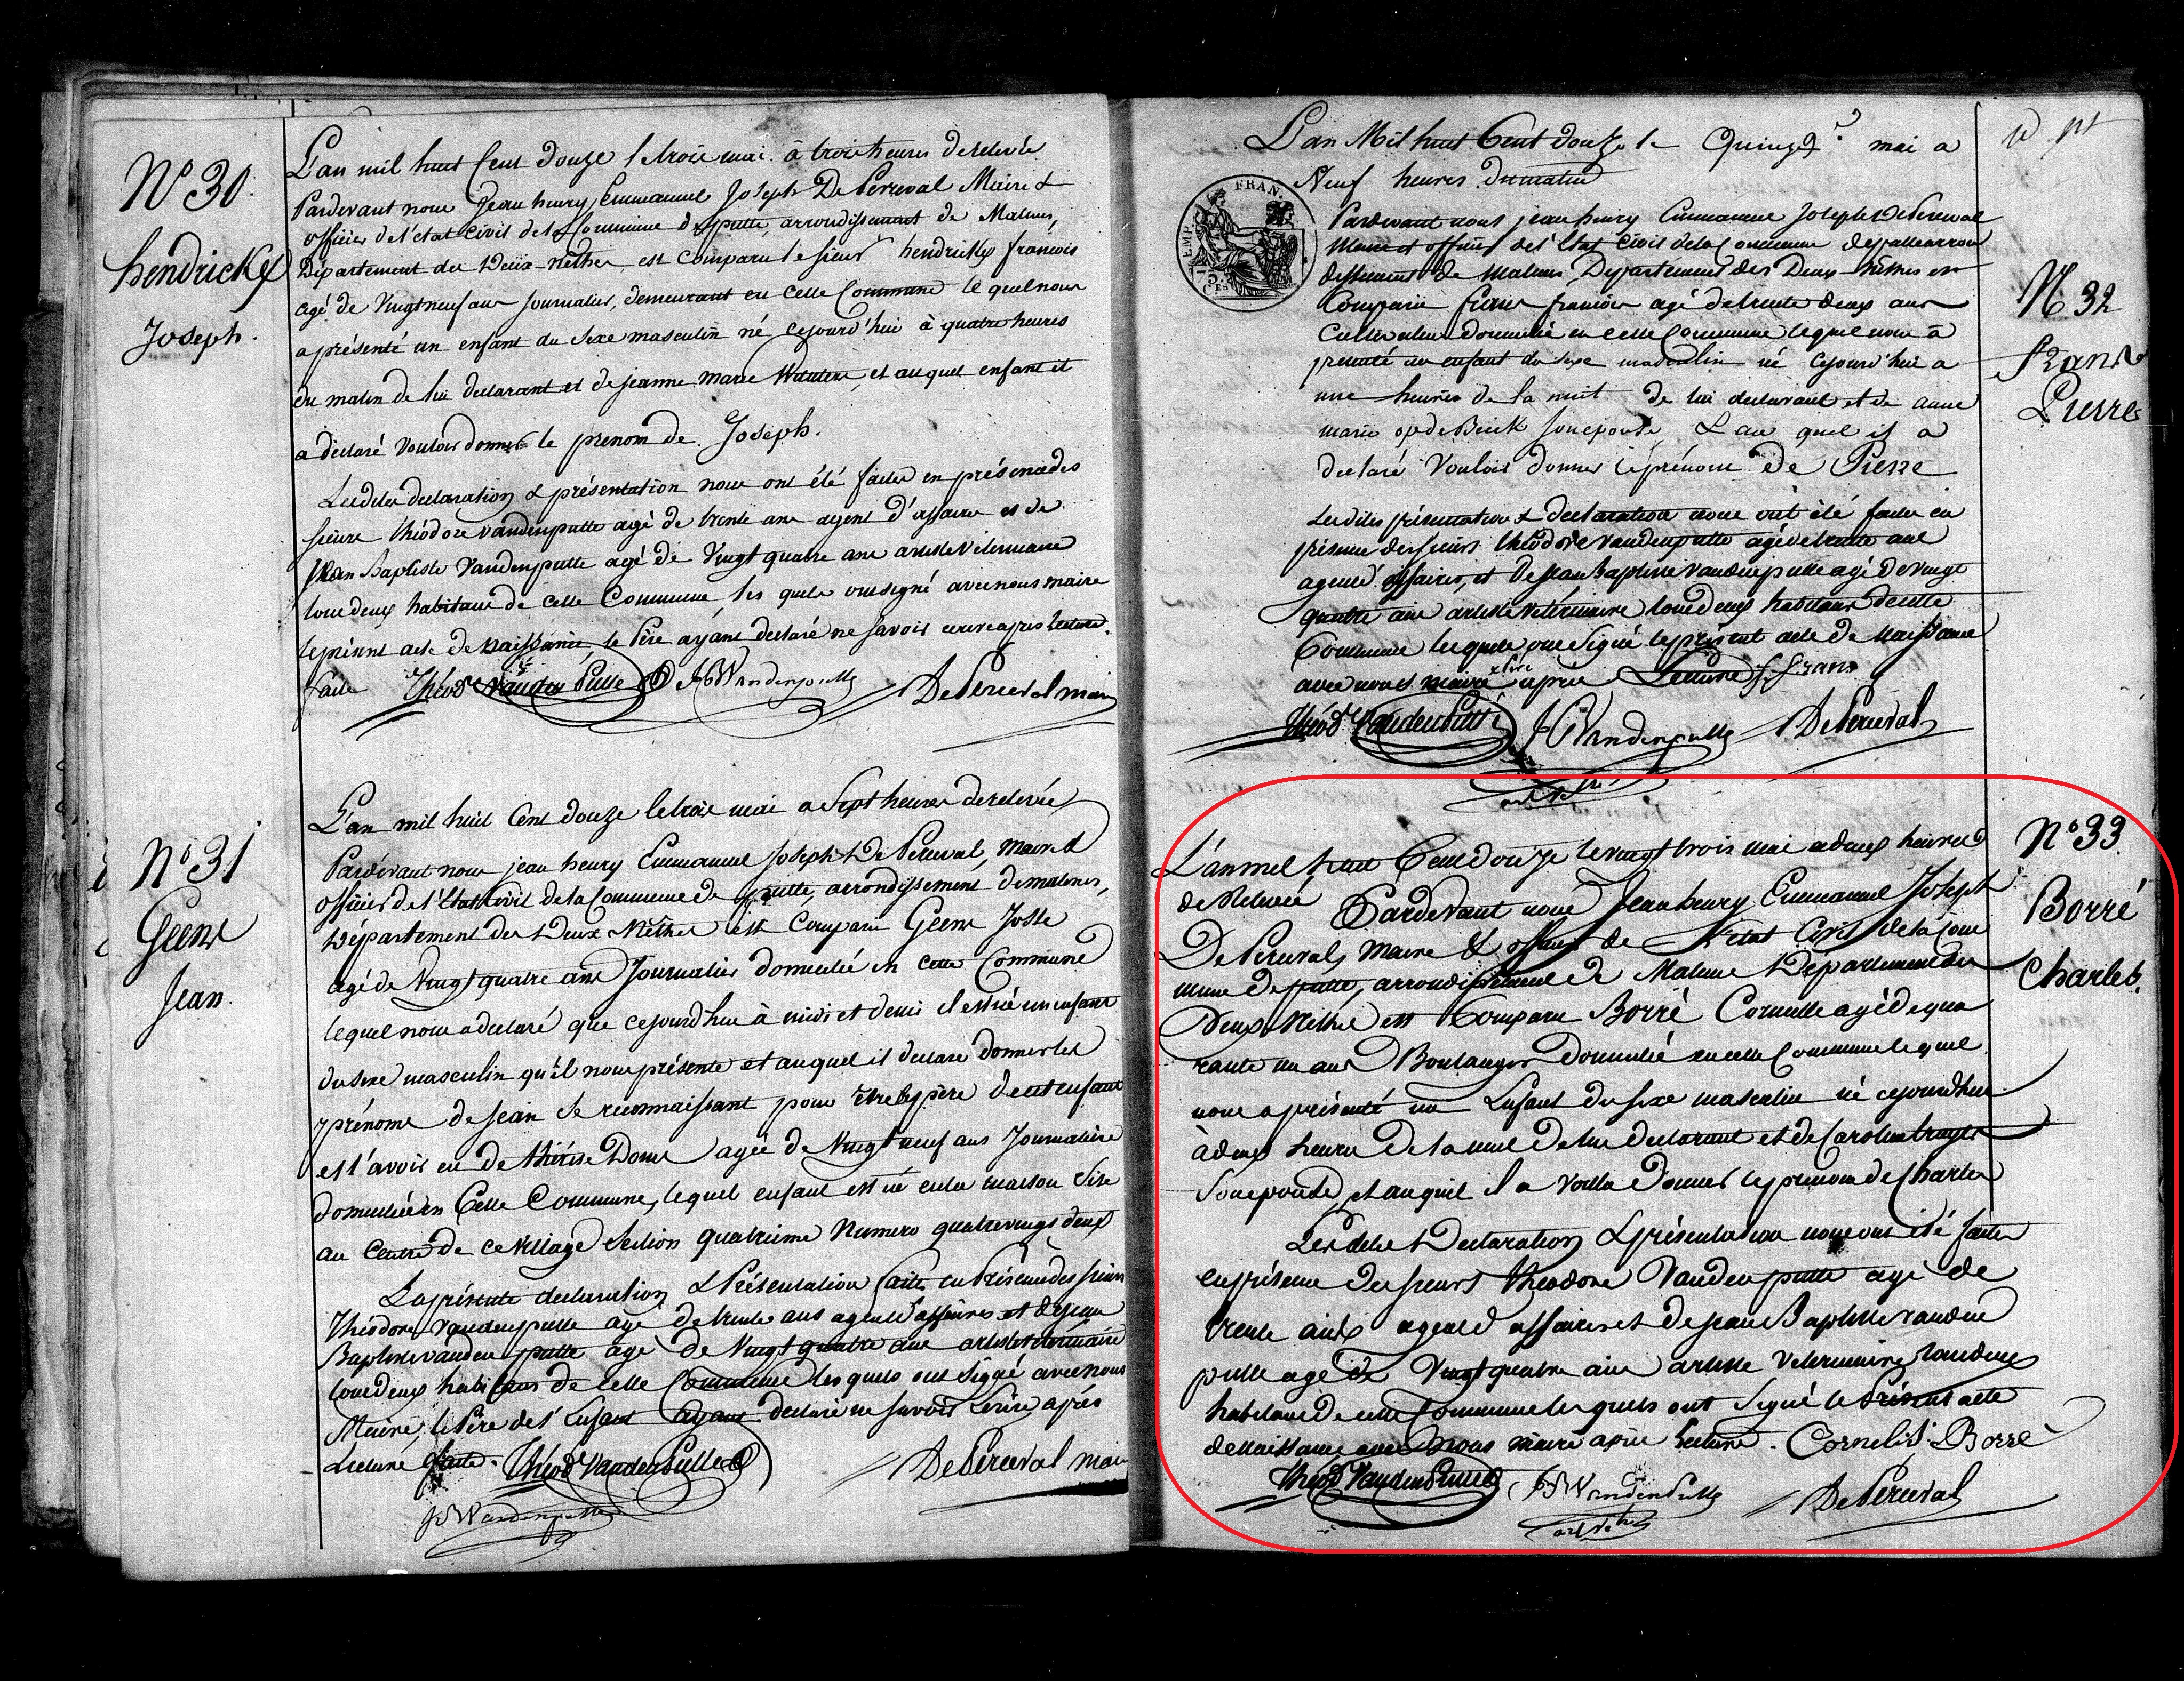 N° 30.
hendrickx
Joseph.
L'an mil huit Cent douze le trois mai à trois heures de relevée
Pardevant nous Jean henry Emmanuel Joseph De Perceval Maire &
officier de l'état civil de la Commune de putte, arrondissement de Malines,
Département des Deux-Nethes, est comparu le sieur hendrickx francois
agé de Vingt neuf ans Journalier, demeurant en cette Commune lequel nous
a présenté un enfant du sexe masculin né cejourd'hui à quatre heures
du matin de lui déclarant et de jeanne marie Wauters, et auquel enfant il
a déclaré vouloir donner le prenom de Joseph.
Lesdites declaration & présentation nous ont été faites en présence des
sieurs théodore vandenputte agé de trente ans agent d'affaires et de
Jean Baptiste Vandenputte agé de Vingt quatre ans artiste Veterinaire
tous deux habitans de cette Commune, les quels ont signé avec nous maire
le présent acte de naissance, le Père ayant declaré ne savoir ecrire apres lecture
faite Théod Vanden Putte JB Vandenputte De Perceval maire
N° 31
Geens
Jean.
L'an mil huit Cent douze le trois mai a Sept heures de relevée
Pardevant nous jean henry Emmanuel Joseph De Perceval, Maire &
officier de l'Etat civil de la Commune de putte, arrondissement de malines,
Département des Deux Nethes est Comparu Geens Josse
agé de Vingt quatre ans Journalier domicilié en cette Commune
lequel nous a declaré que cejourd'hui à midi et demi il est né un enfant
du sexe masculin qu'il nous présente et auquel il declare donner les
prénoms de jean se reconnaissant pour être le père de cet enfant
et l'avoir eu de thérèse Doms agée de Vingt neuf ans Journaliere
domiciliée en Cette Commune, lequel enfant est né en la maison Sise
au Centre de ce Village Section quatrieme Numero quatrevingt deux
La présente declaration & Présentation faite en Présence des sieurs
Théodore Vandenputte agé de trente ans agent d'affaires et de jean
Baptiste vanden putte agé de Vingt quatre ans artiste veterinaire
tous deux habitans de Cette Commune les quels ont Signé avec nous
Maire, le Père de l'Enfant ayant declaré ne savoir Ecrire après
Lecture faite. Théod Vanden Putte De Perceval maire
JB Vandenputte
L'an Mil huit Cent douze le Quinze mai a
Neuf heures du matin
EMP. FRAN.
Pardevant nous jean henry Emmanuel Joseph De Perceval
Maire et officier de l'Etat Civil de la Commune de putte arron
dissement de malines, Département des Deux-Nèthes est
Comparu frans francois agé de trente deux ans
Cultivateur domicilié en cette Commune lequel nous a
presenté un enfant du sexe masculin né cejourd'hui a
une heures de la nuit de lui declarant et de anne
marie op de Beeck Son epouse, & au quel il a
declaré Vouloir donner le prénom de Pierre
Lesdites présentation & declaration nous ont été faites en
présence des sieurs théodore vandenputte agé de trente ans
agent d'affaires, et de jean Baptiste vandenputte agé de vingt
quatre ans artiste vétérinaire tous deux habitans de cette
Commune lesquels ont Signé le présent acte de Naissance
avec nous maire & père après Lecture f frans
Théod Vanden Putte JB Vandenputte De Perceval
art. Vétré
N° 32
Frans
Pierre
L'an mil huit Cent douze le vingt trois mai a deux heures
de Relevée Pardevant nous Jean henry Emmanuel Joseph
De Perceval, Maire & officier de l'état Civil de la Com
mune de putte, arrondissement de Malines Département des
Deux Nethes est Comparu Borré Corneille agé de qua
rante un ans Boulanger Domicilié en cette Commune lequel
nous a présenté un Enfant du sexe masculin né cejourdhui
à deux heures de la nuit de lui declarant et de Caroline
Son epouse, et auquel il a voulu Donner le prenom de Charles
Les dites Declaration & présentation nous ont été faites
en présence des sieurs théodore Vanden putte agé de
trente ans agent d'affaires et de jean Baptiste vanden
putte agé de Vingt quatre ans artiste Veterinaire tous deux
habitans de cette Commune les quels ont Signé le Présent acte
de naissance avec nous maire après lecture. Cornelis Borré
Théod Vanden Putte JB Vandenputte De Perceval
art. Vetré
N° 33.
Borré
Charles.